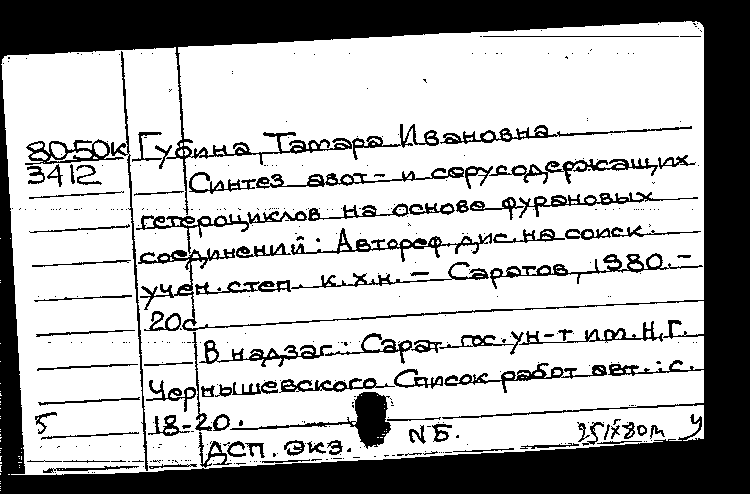 80-50к Губина, Тамара Ивановна.
3412
Синтез азот- и серусодержащих
гетероциклов на основе фурановых
соединений: Автореф. дис. на соиск.
учен. степ. к.х.н. – Саратов, 1980. –
20с.
В надзаг.: Сарат. гос. ун-т им. Н.Г.
Чернышевского. Список работ авт.: с.
18-20.
5
ДСП. Экз. №Б. 25IX80т У